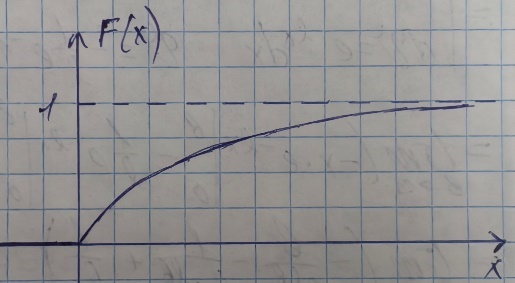 F(x)
1
x